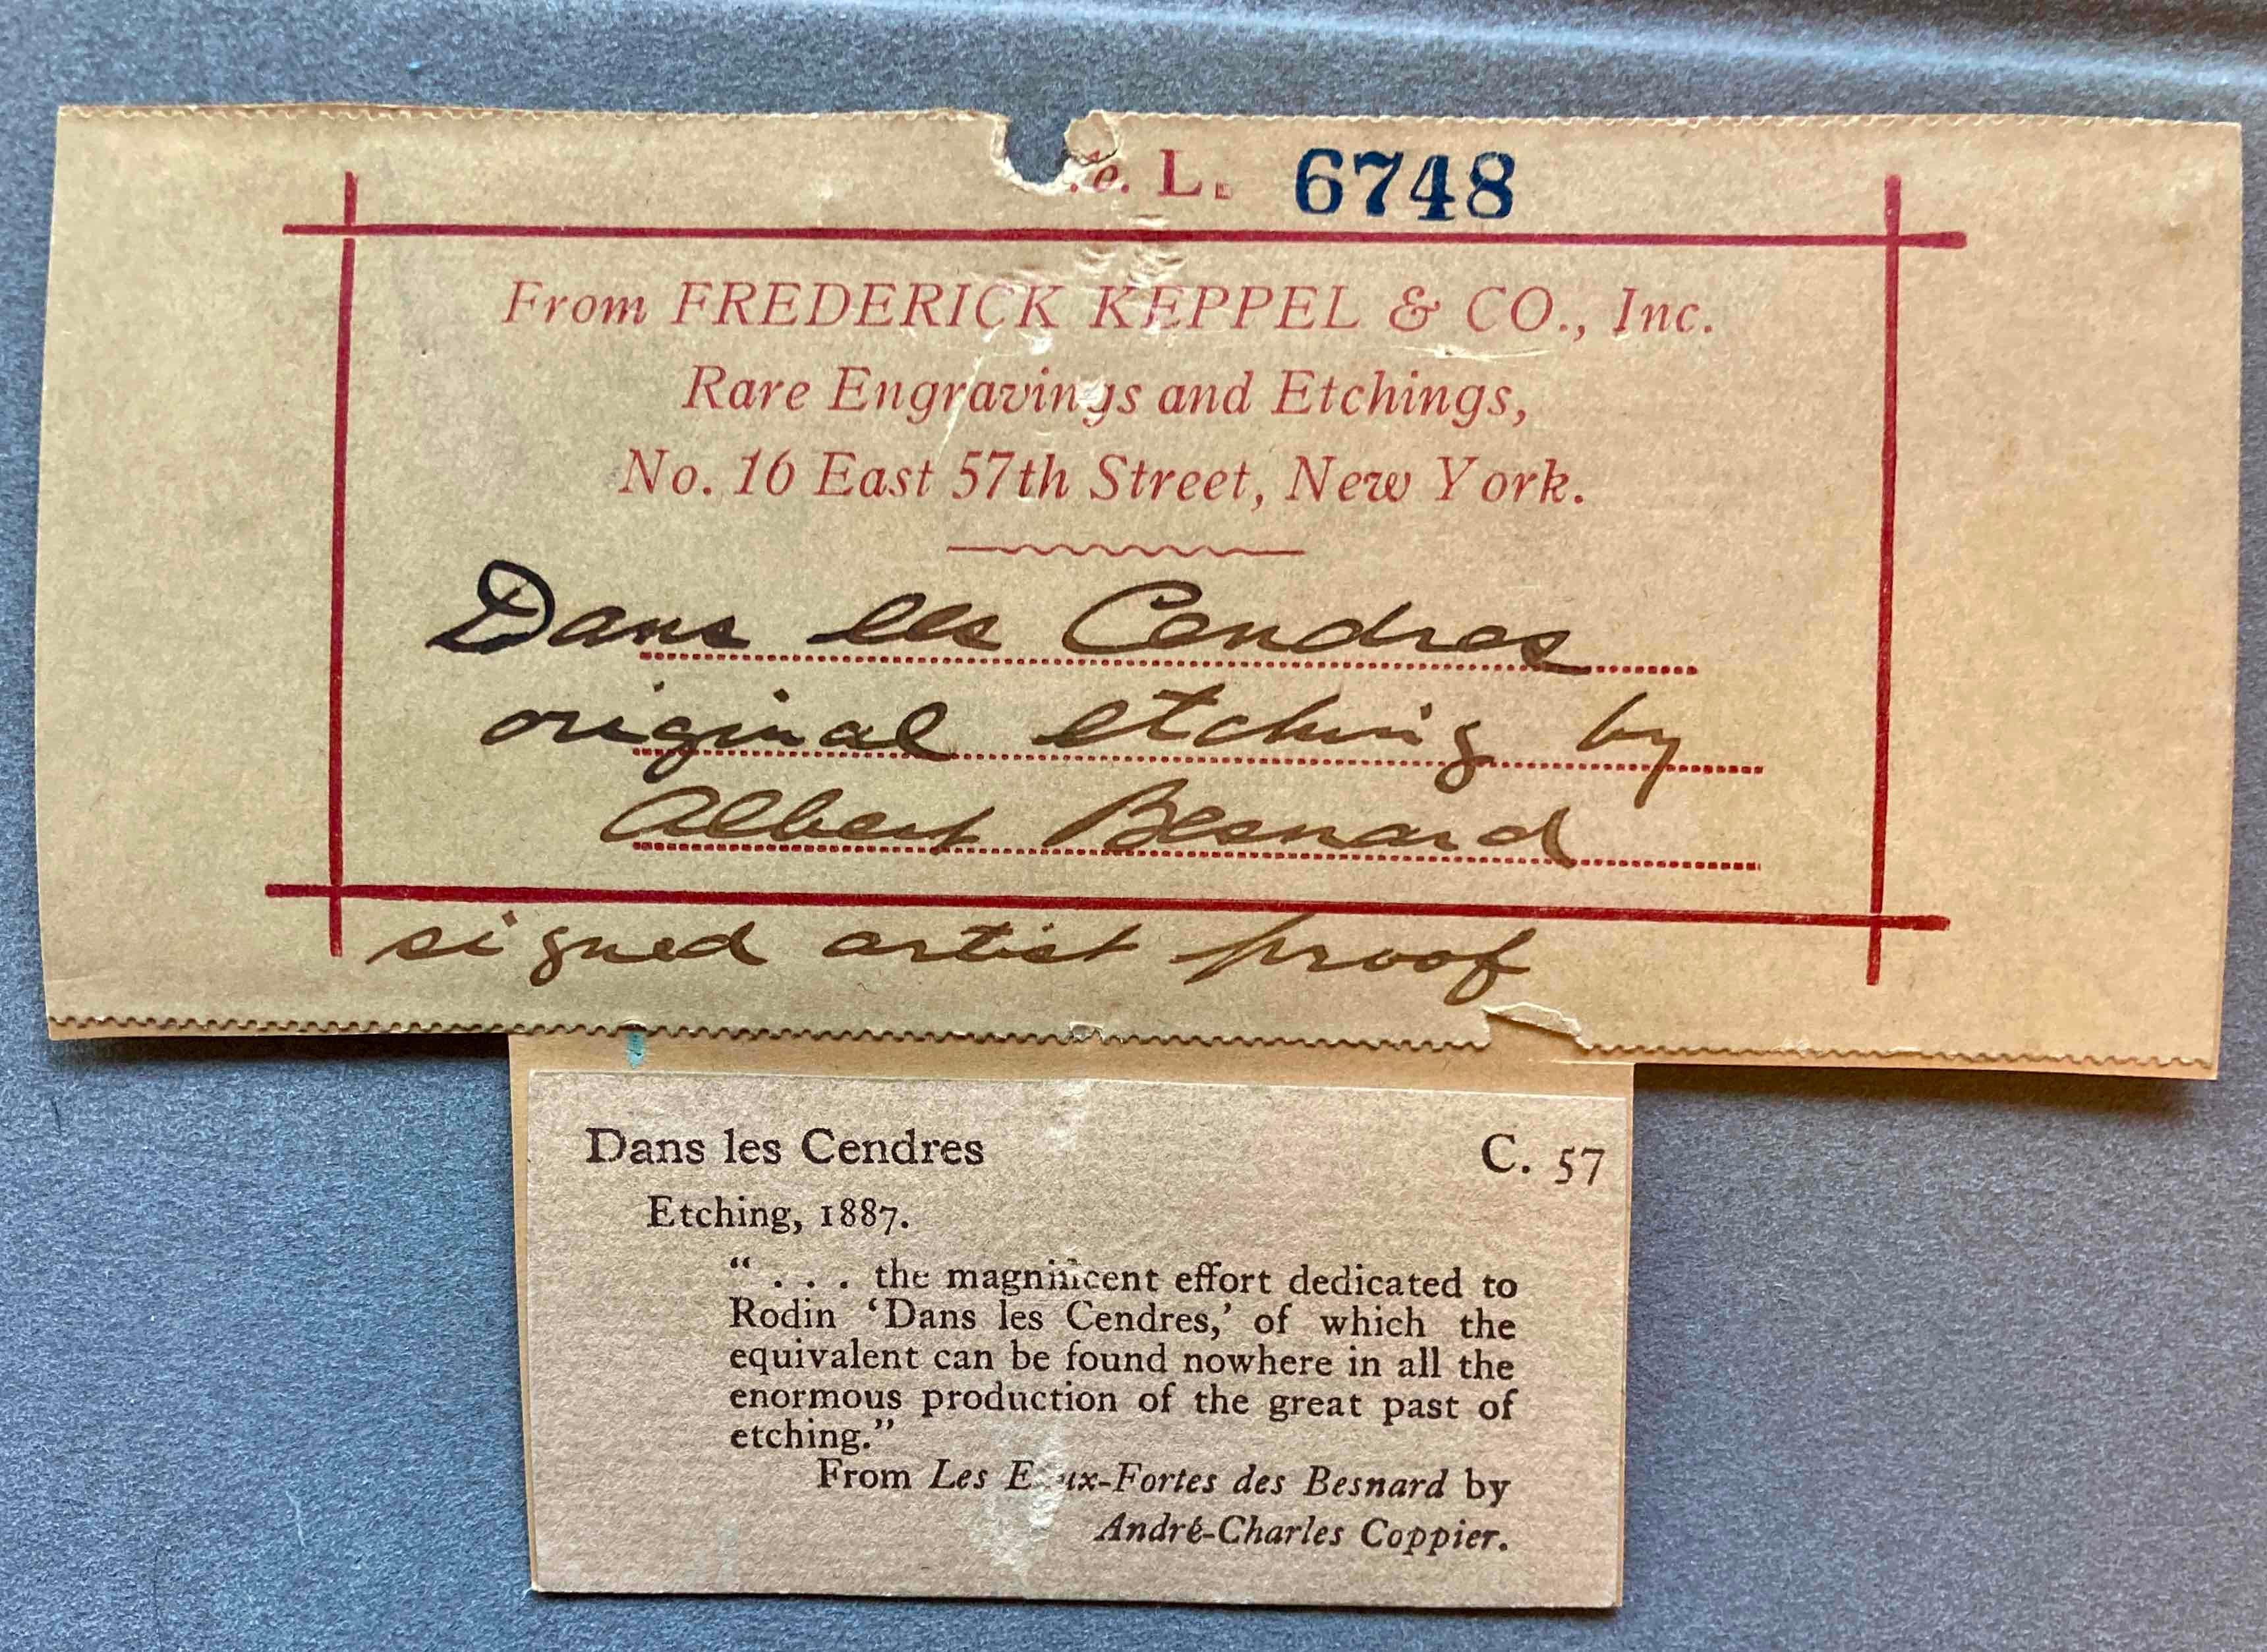 L. 6748
From FREDERICK KEPPEL & CO., Inc.
Rare Engravings and Etchings,
No. 16 East 57th Street, New York.
Dans les Cendres
original etching by
Albert Besnard
signed artist proof
Dans les Cendres C. 57
Etching, 1887.
“ . . . the magnificent effort dedicated to
Rodin ‘Dans les Cendres,’ of which the
equivalent can be found nowhere in all the
enormous production of the great past of
etching.”
From Les Eaux-Fortes des Besnard by
André-Charles Coppier.